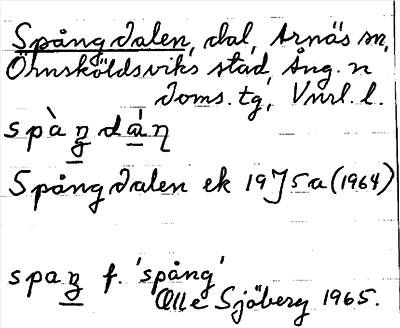 Spångdalen, dal, Arnäs sn,
Örnsköldsviks stad, Ång. n
doms. tg, Vnrl. l.
spàŋdáṇ
Spångdalen ek 19J5a (1964)
spaŋ f. 'spång'
Olle Sjöberg 1965.